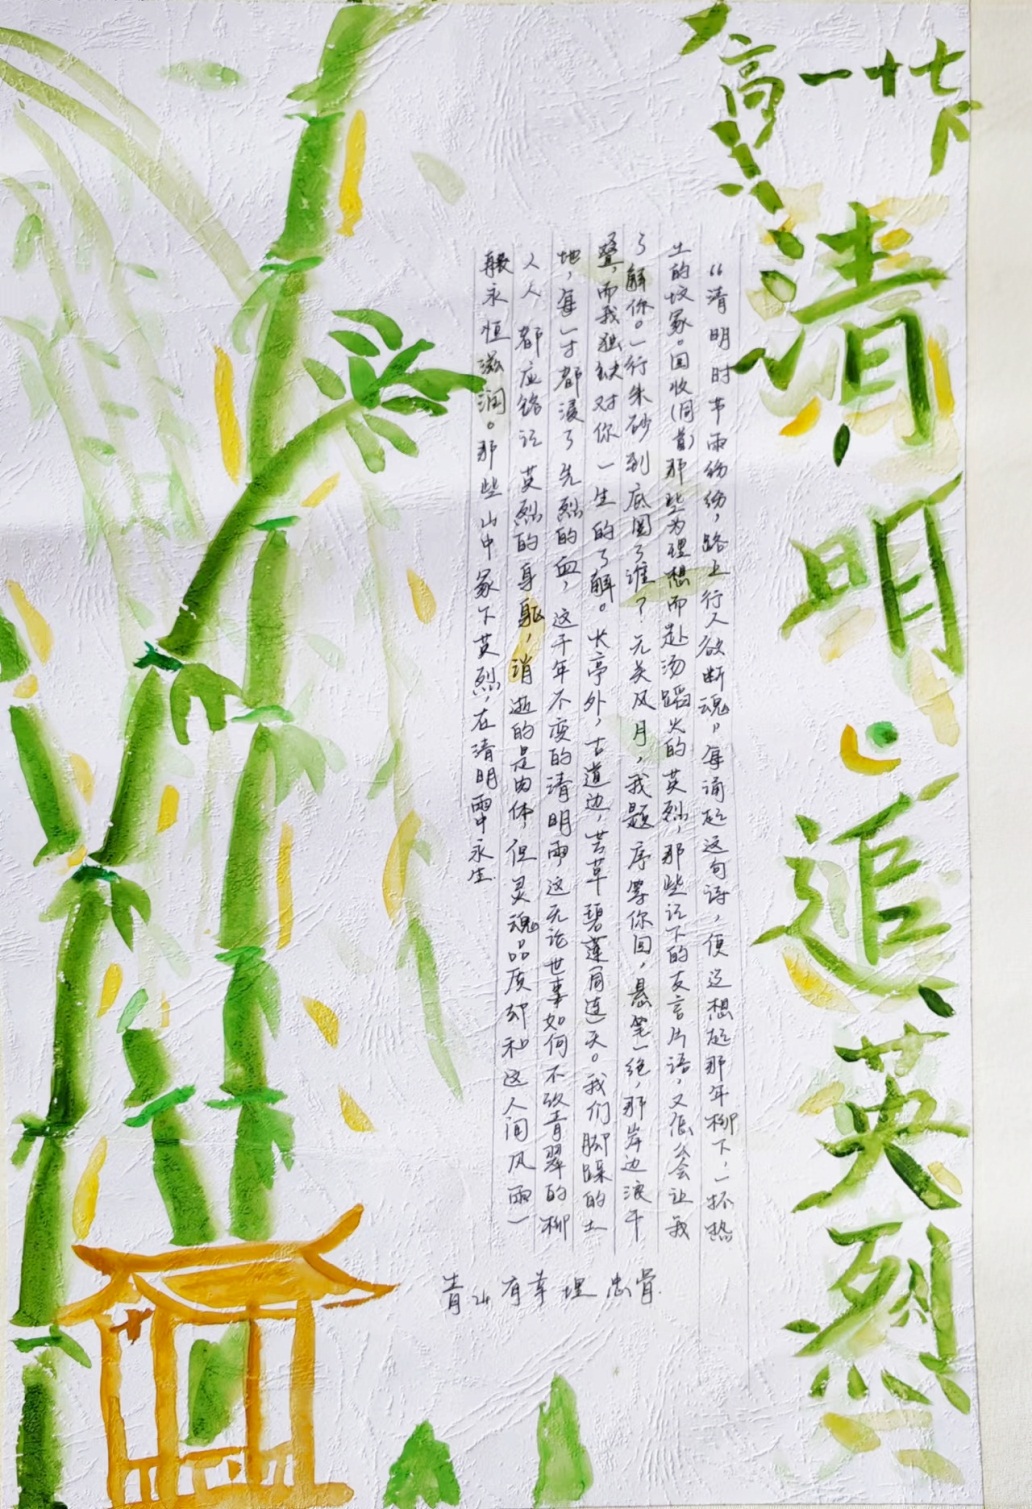 高一廿七
清明·追英烈
“清明时节雨纷纷，路上行人欲断魂。”每诵起这句诗，便遥想起那年柳下，一抔热
土的坟冢。回收(同首)那些为理想而赴汤蹈火的英烈，那些记下的支言片语，又怎会让我
了解你。一行朱砂到底圈了谁？无关风月，我题序等你回，悬笔一绝，那岸边浪千
叠，而我独缺对你一生的了解。长亭外，古道边，芳草碧连天。我们脚踩的土
地，每一寸都浸了先烈的血，这千年不变的清明雨，这无论世事如何不改青翠的柳
人人都应铭记英烈的身躯，消逝的是肉体，但灵魂品质却和这人间风雨一
般永恒滋润。那些山中冢下英烈，在清明雨中永生
青山有幸埋忠骨